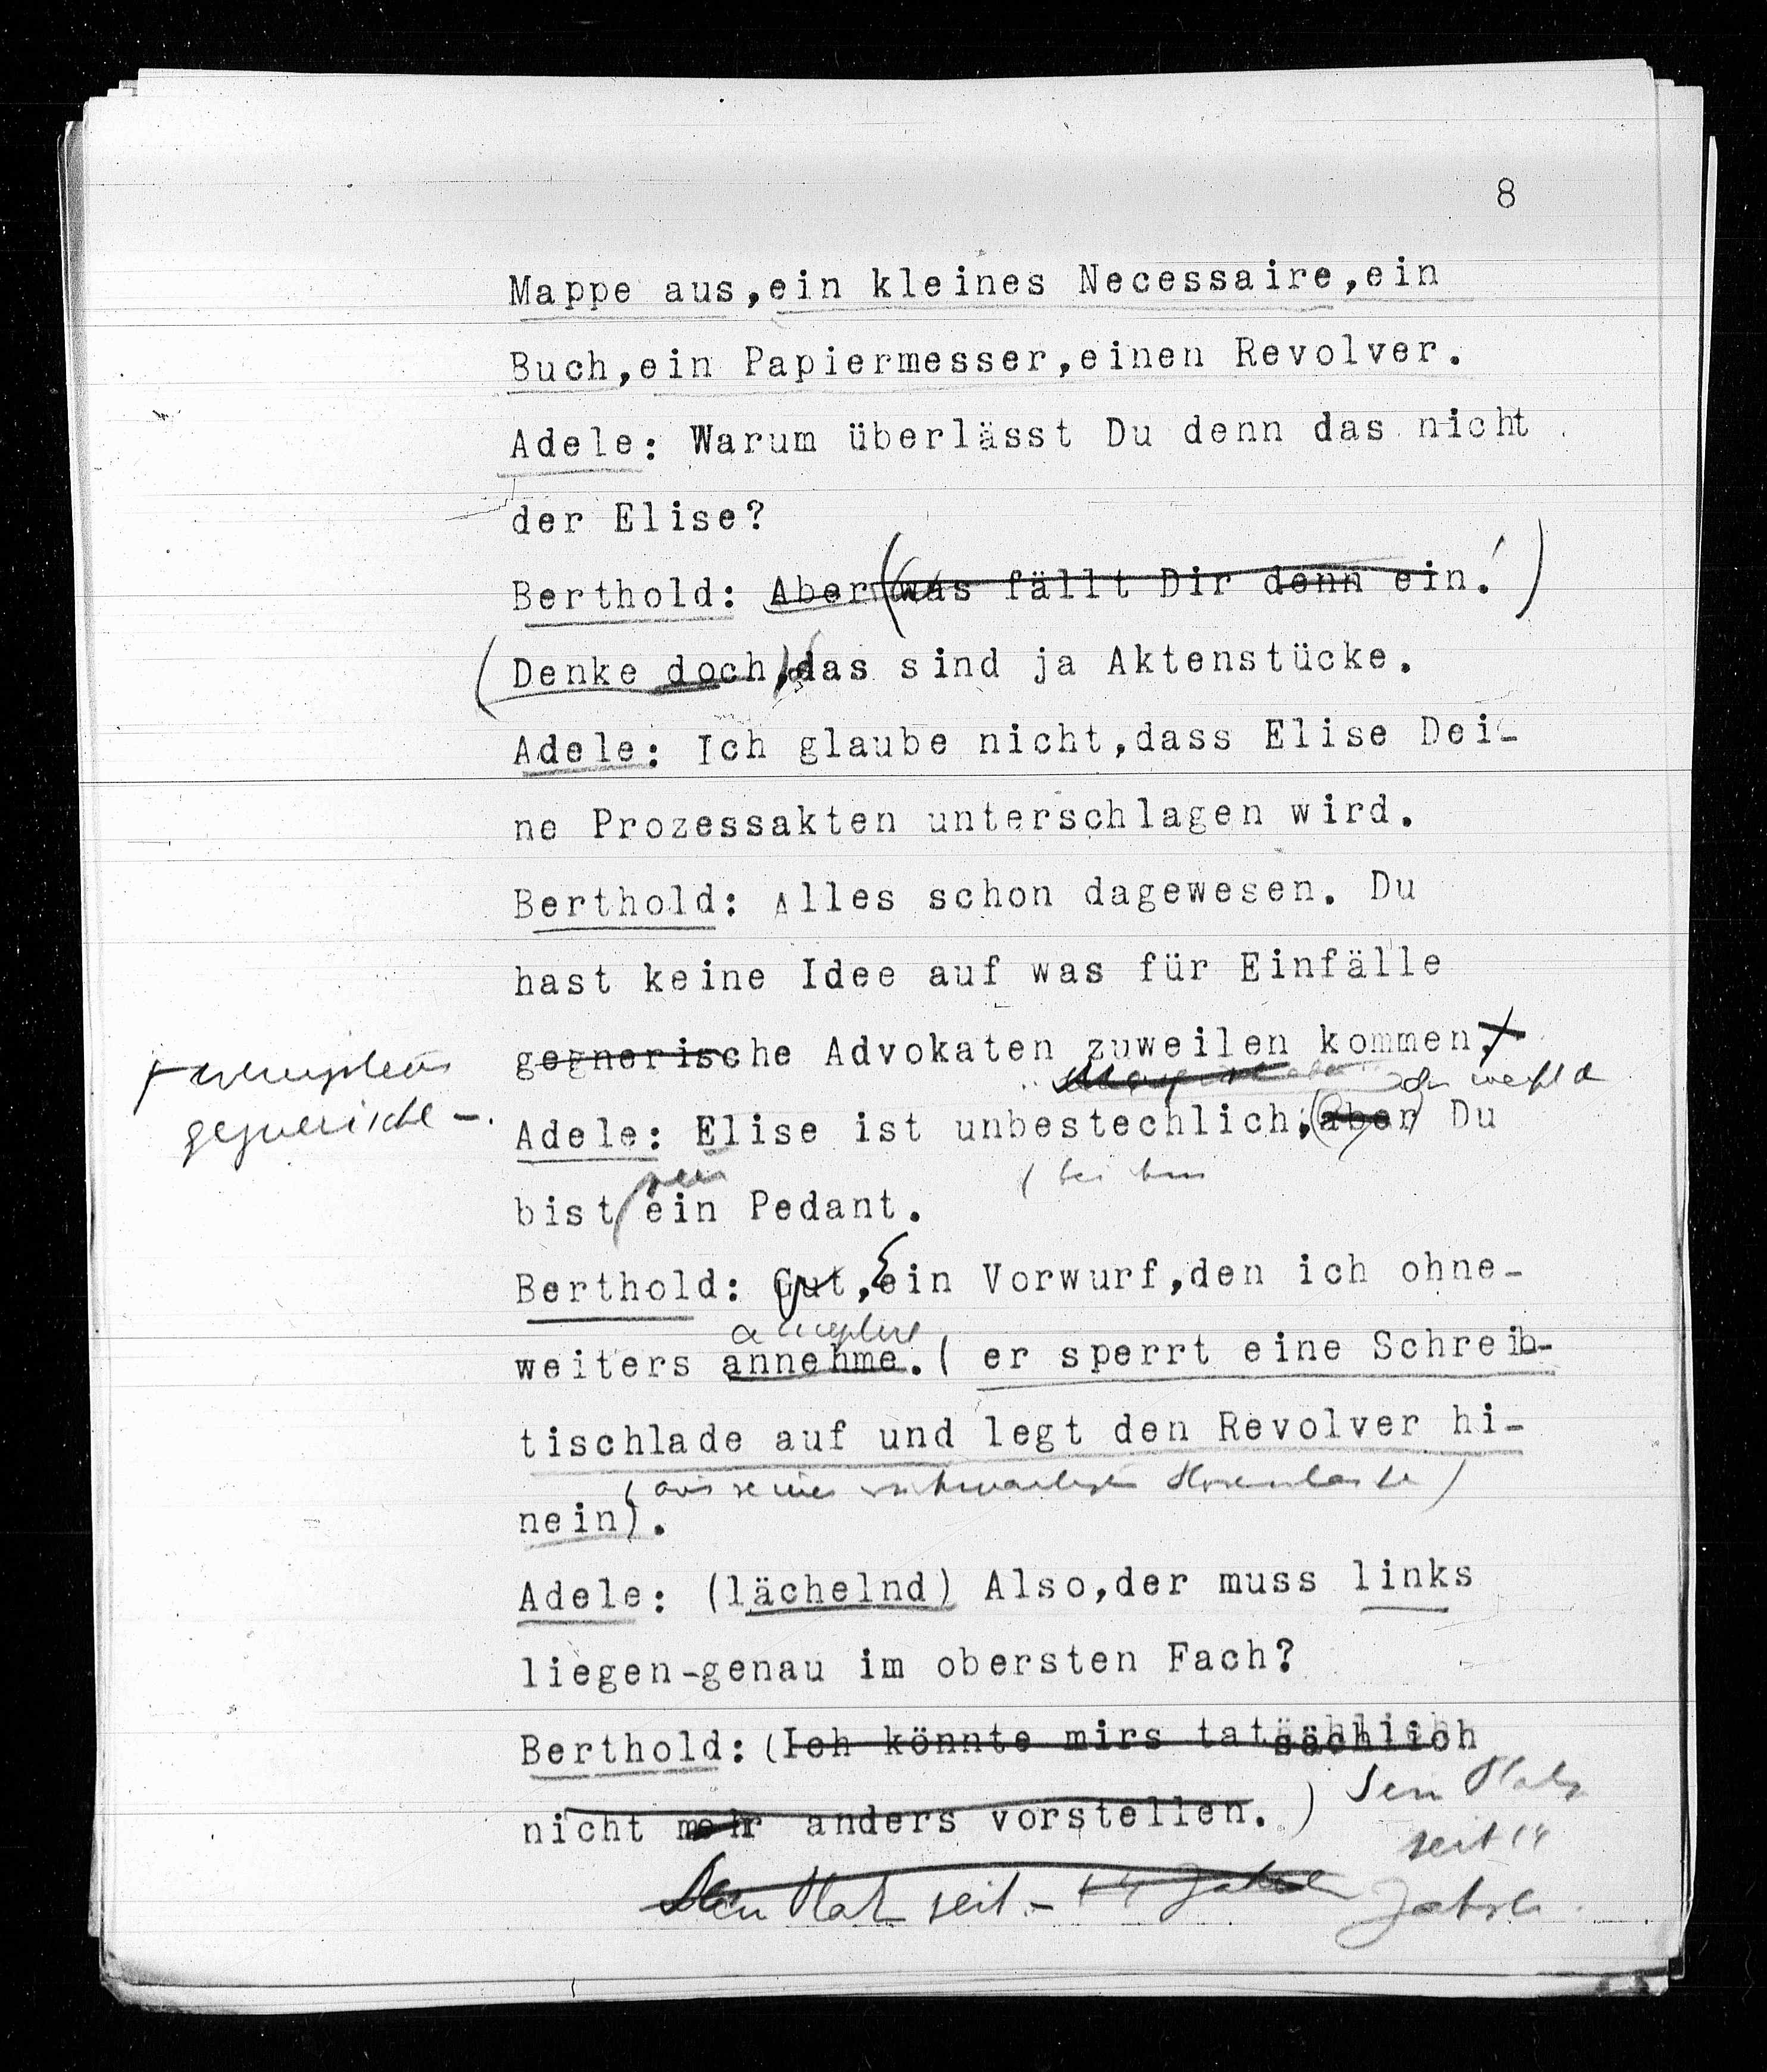 8
Mappe aus,ein kleines Necessaire,ein
Buch,ein Papiermesser,einen Revolver.
Adele: Warum überlässt Du denn das nicht
der Elise?
Berthold: Aber (was fällt Dir denn ein.!)
(Denke doch,)das sind ja Aktenstücke.
Adele: Ich glaube nicht,dass Elise Dei-
ne Prozessakten unterschlagen wird.
Berthold: Alles schon dagewesen. Du
hast keine Idee auf was für Einfälle
gegnerische Advokaten zuweilen kommen.
gegnerische -.
Adele: Elise ist unbestechlich,(aber) Du
bist ein Pedant.
Berthold: Gut,ein Vorwurf,den ich ohne-
weiters annehme.( er sperrt eine Schreib-
tischlade auf und legt den Revolver hi-
(aus seiner Hosentasche)
nein).
Adele: (lächelnd) Also,der muss links
liegen-genau im obersten Fach?
Berthold: (Ich könnte mirs tatsächlich
nicht mehr anders vorstellen.)
Sein Platz
seit 14
Jahren.
Sein Platz seit - 14 Jahren